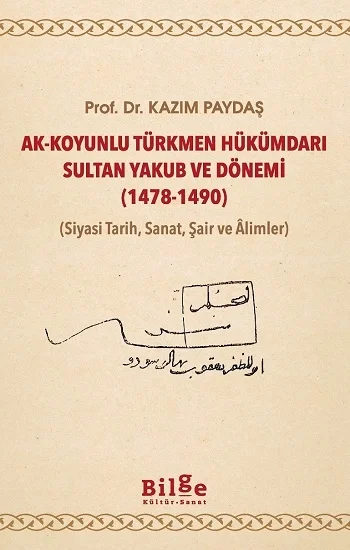 Prof. Dr. KAZIM PAYDAŞ
AK-KOYUNLU TÜRKMEN HÜKÜMDARI
SULTAN YAKUB VE DÖNEMİ
(1478-1490)
(Siyasi Tarih, Sanat, Şair ve Âlimler)
ابو المظفر یعقوب بهادر
Bilge
Kültür-Sanat